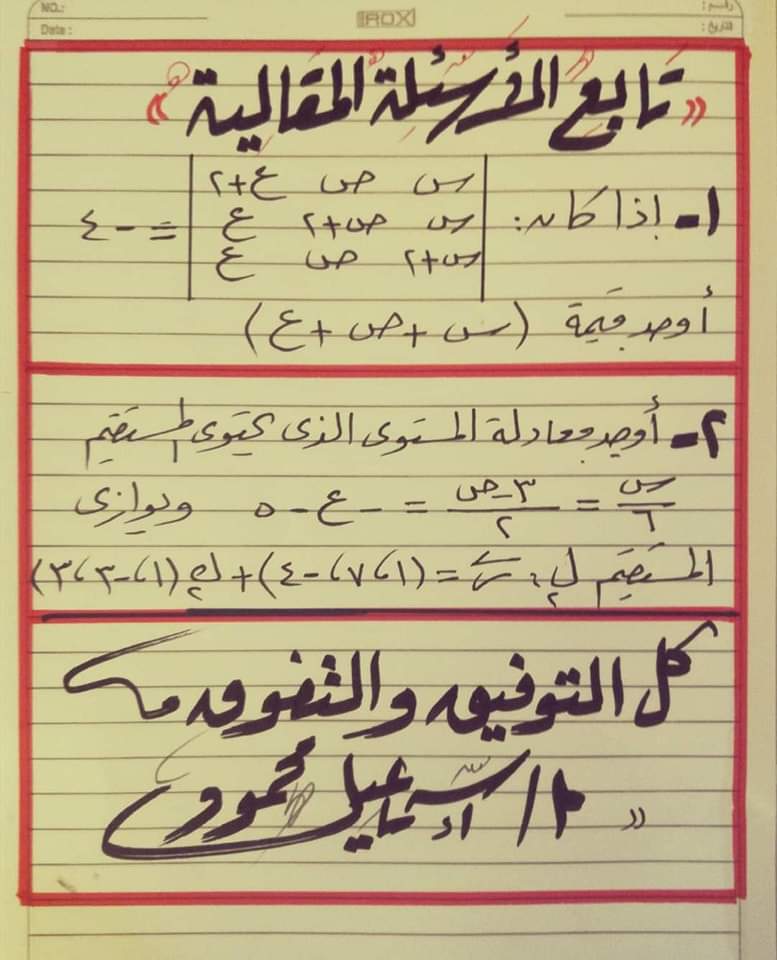 NO.:
رقم:
IROX
Date:
التاريخ:
« تابع الأسئلة المقالية »
١- إذا كان: | س ص ع+٢ |
| س ص+٢ ع | = -٤
| س+٢ ص ع |
أوجد قيمة (س + ص + ع)
٢- أوجد معادلة المستوى الذى يحتوى المستقيم
س/٦ = ٣-ص/٢ = -ع-٥ ويوازى
المستقيم ل٢: ر = (١، ٧، -٤) + ك(١، -٣، ٣)
كل التوفيق والتفوق
« أ/ إسماعيل محمود